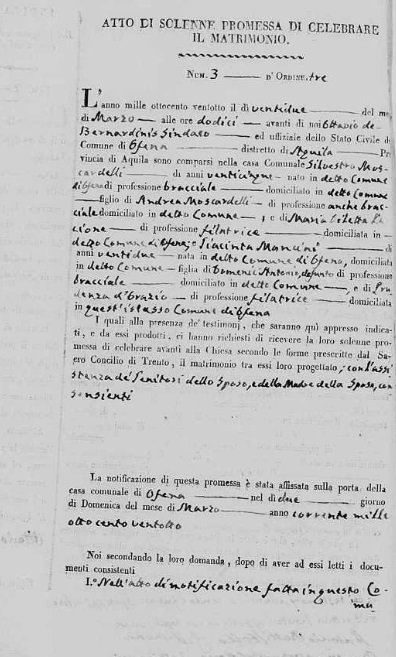 ATTO DI SOLENNE PROMESSA DI CELEBRARE
IL MATRIMONIO.
Num. 3 — d'Ordine tre
L'anno mille ottocento ventotto il di ventidue — del mese
di Marzo — alle ore dodici — avanti di noi Ottavio de
Bernardinis Sindaco — ed uffiziale dello Stato Civile di
Comune di Ofena — distretto di Aquila — Pro
vincia di Aquila sono comparsi nella casa Comunale Silvestro Mos-
cardelli — di anni venticinque — nato in detto Comune
di Ofena di professione bracciale — domiciliato in detto Comune
— figlio di Andrea Moscardelli — di professione anche brac-
ciale domiciliato in detto Comune — , e di Maria
cione — di professione filatrice — domiciliata in —
detto Comune di Ofena; e Giacinta Mancini — di
anni ventidue — nata in detto Comune di Ofena, domiciliata
in detto Comune — figlia di Domenic'Antonio, defunto di professione
bracciale — domiciliato in detto Comune —, e di Pru
denza d'Orazio — di professione filatrice — domiciliata
in quest'istesso Comune di Ofena
I quali alla presenza de' testimonj, che saranno quì appresso indica-
ti, e da essi prodotti, ci hanno richiesti di ricevere la loro solenne pro-
messa di celebrare avanti alla Chiesa secondo le forme prescritte dal Sa-
gro Concilio di Trento, il matrimonio tra essi loro progettato, con l'assi
stenza de' Genitori dello Sposo, e della Madre della Sposa, con
sensienti
La notificazione di questa promessa è stata affissata sulla porta della
casa comunale di Ofena — nel di due — giorno
di Domenica del mese di Marzo — anno corrente mille
otto cento ventotto
Noi secondando la loro domanda, dopo di aver ad essi letti i docu-
menti consistenti
1.° Nell'atto di notificazione fatta in questo Co-
mu